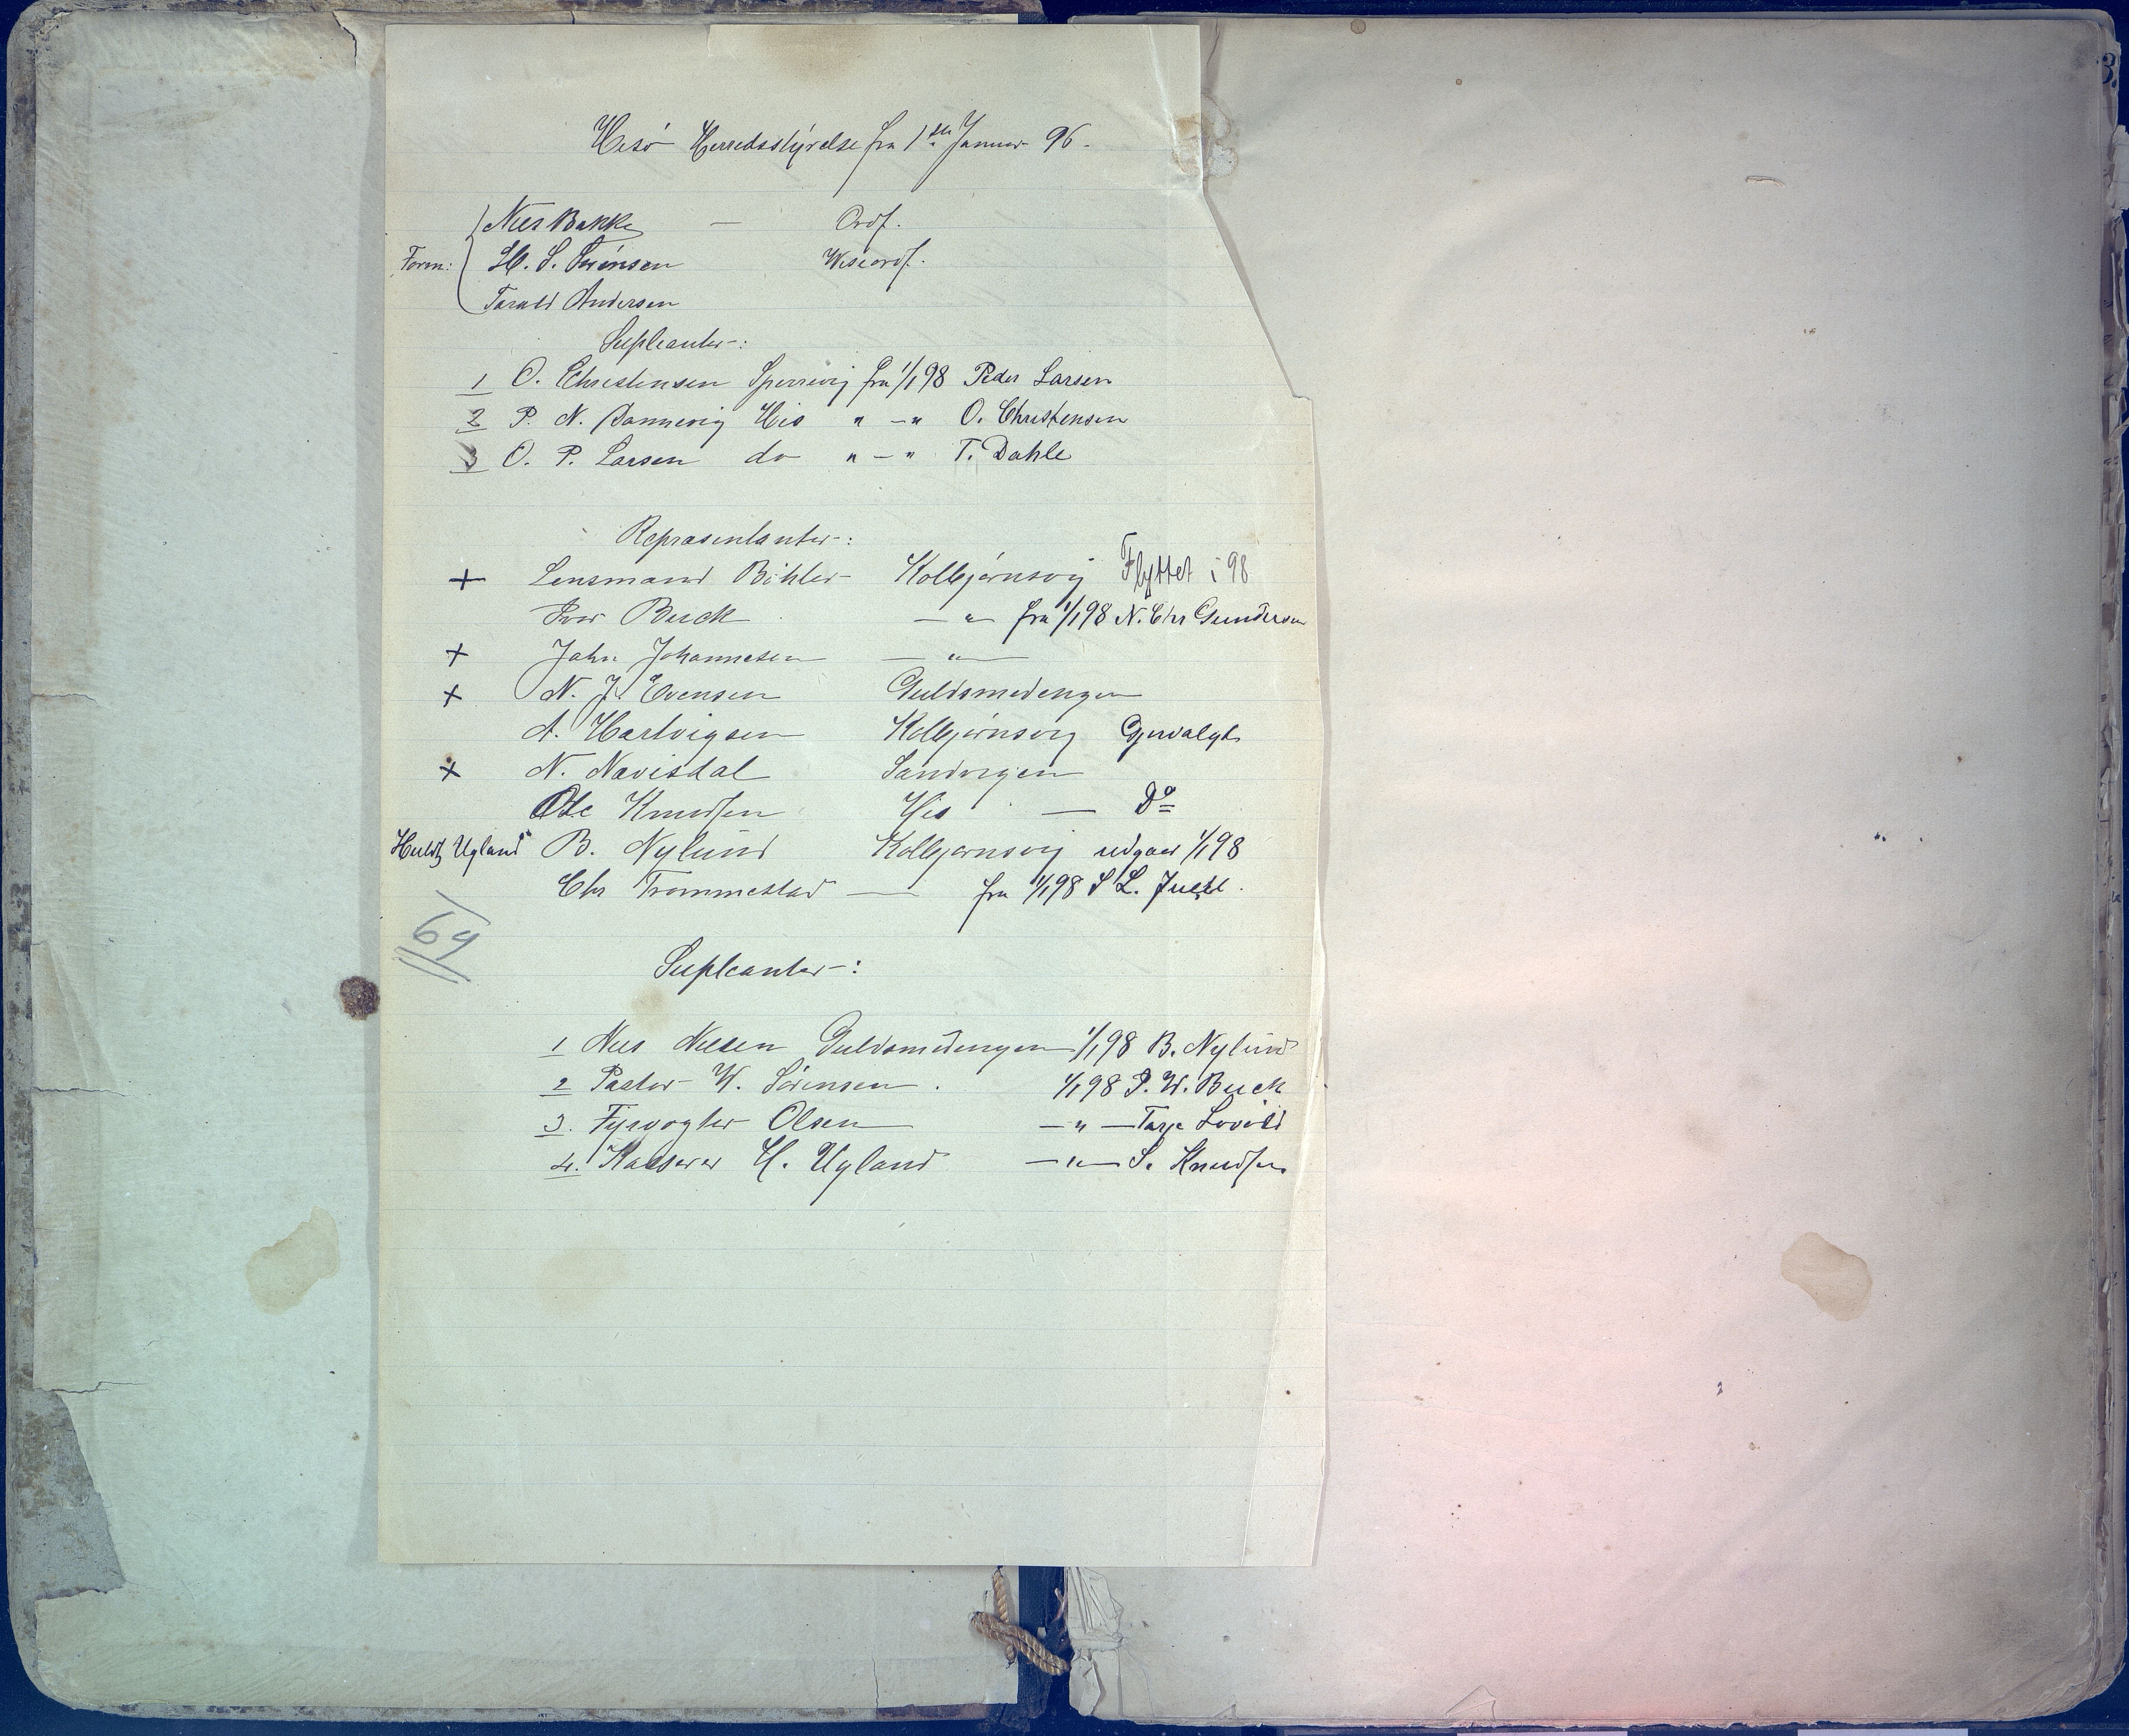 Hisö Herredsstyrelse fra 1ste Januar 96.
Niels Bakke — Ordf.
Form: H. S. Sörensen Viseordf.
Tarald Andersen
Supleanter:
1 O. Christensen Sperrevig fra 1/1 98 Peder Larsen
2 P. N. Dannevig His " — " O. Christensen
3 O. P. Larsen do " — " T. Dahle
Repræsentanter:
+ Lensmand Böhler Kolbjörnsvig Flyttet i 98
Iver Buck — " — fra 1/1 98 N. Chr Gundersen
+ Jahn Johannesen — " —
+ N. J. Evensen Guldsmedengen
A. Hartvigsen Kolbjörnsvig Gjenvalgt
+ N. Navisdal Sandvigen
Ole Knudsen His — Do
Ugland B. Nylund Kolbjörnsvig udgaar 1/1 98
Chr Trommestad — fra 1/1 98 S L. Juell.
69
Supleanter:
1 Niels Nielsen Guldsmedengen 1/1 98 B. Nylund
2 Pastor W. Sörensen. 1/1 98 P. W. Buck
3. Fyrvogter Olsen — " — Tarje Lovold
4. Kasserer H. Ugland — " — S. Knudsen
3